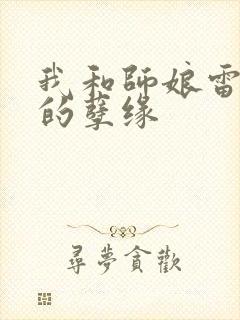 我和師娘雷
的孽緣
尋夢貪歡